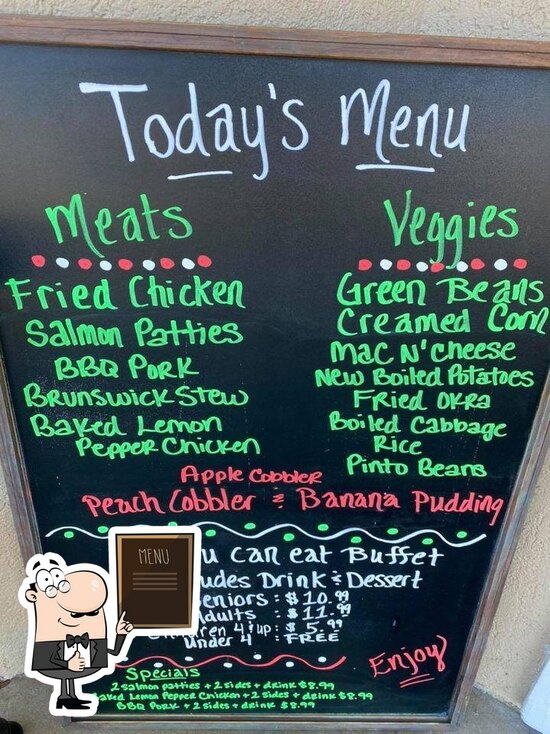 Today's Menu
Meats
Fried Chicken
Salmon Patties
BBQ Pork
Brunswick Stew
Baked Lemon
Pepper Chicken
Veggies
Green Beans
Creamed Corn
Mac N' Cheese
New Boiled Potatoes
Fried Okra
Boiled Cabbage
Rice
Pinto Beans
Apple Cobbler
Peach Cobbler & Banana Pudding
can eat Buffet
Drink & Dessert
: $10.99
: $11.99
4 & up : $5.99
Under 4 : FREE
Enjoy
Specials
2 salmon patties + 2 sides + drink $8.99
Lemon Pepper Chicken + 2 sides + drink $8.99
BBQ Pork + 2 sides + drink $8.99
MENU